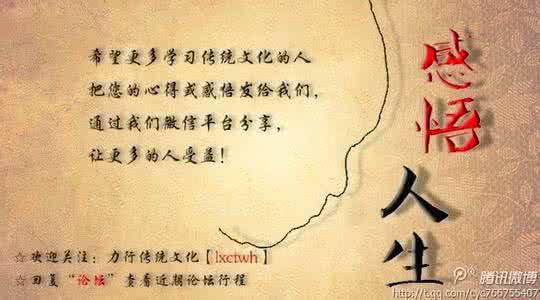 希望更多学习传统文化的人
把您的心得或感悟发给我们，
通过我们微信平台分享，
让更多的人受益！
感悟
人生
☆欢迎关注：力行传统文化【lxctwh】
☆回复“论坛”查看近期论坛行程
腾讯微博
http://t.qq.com/c766755407